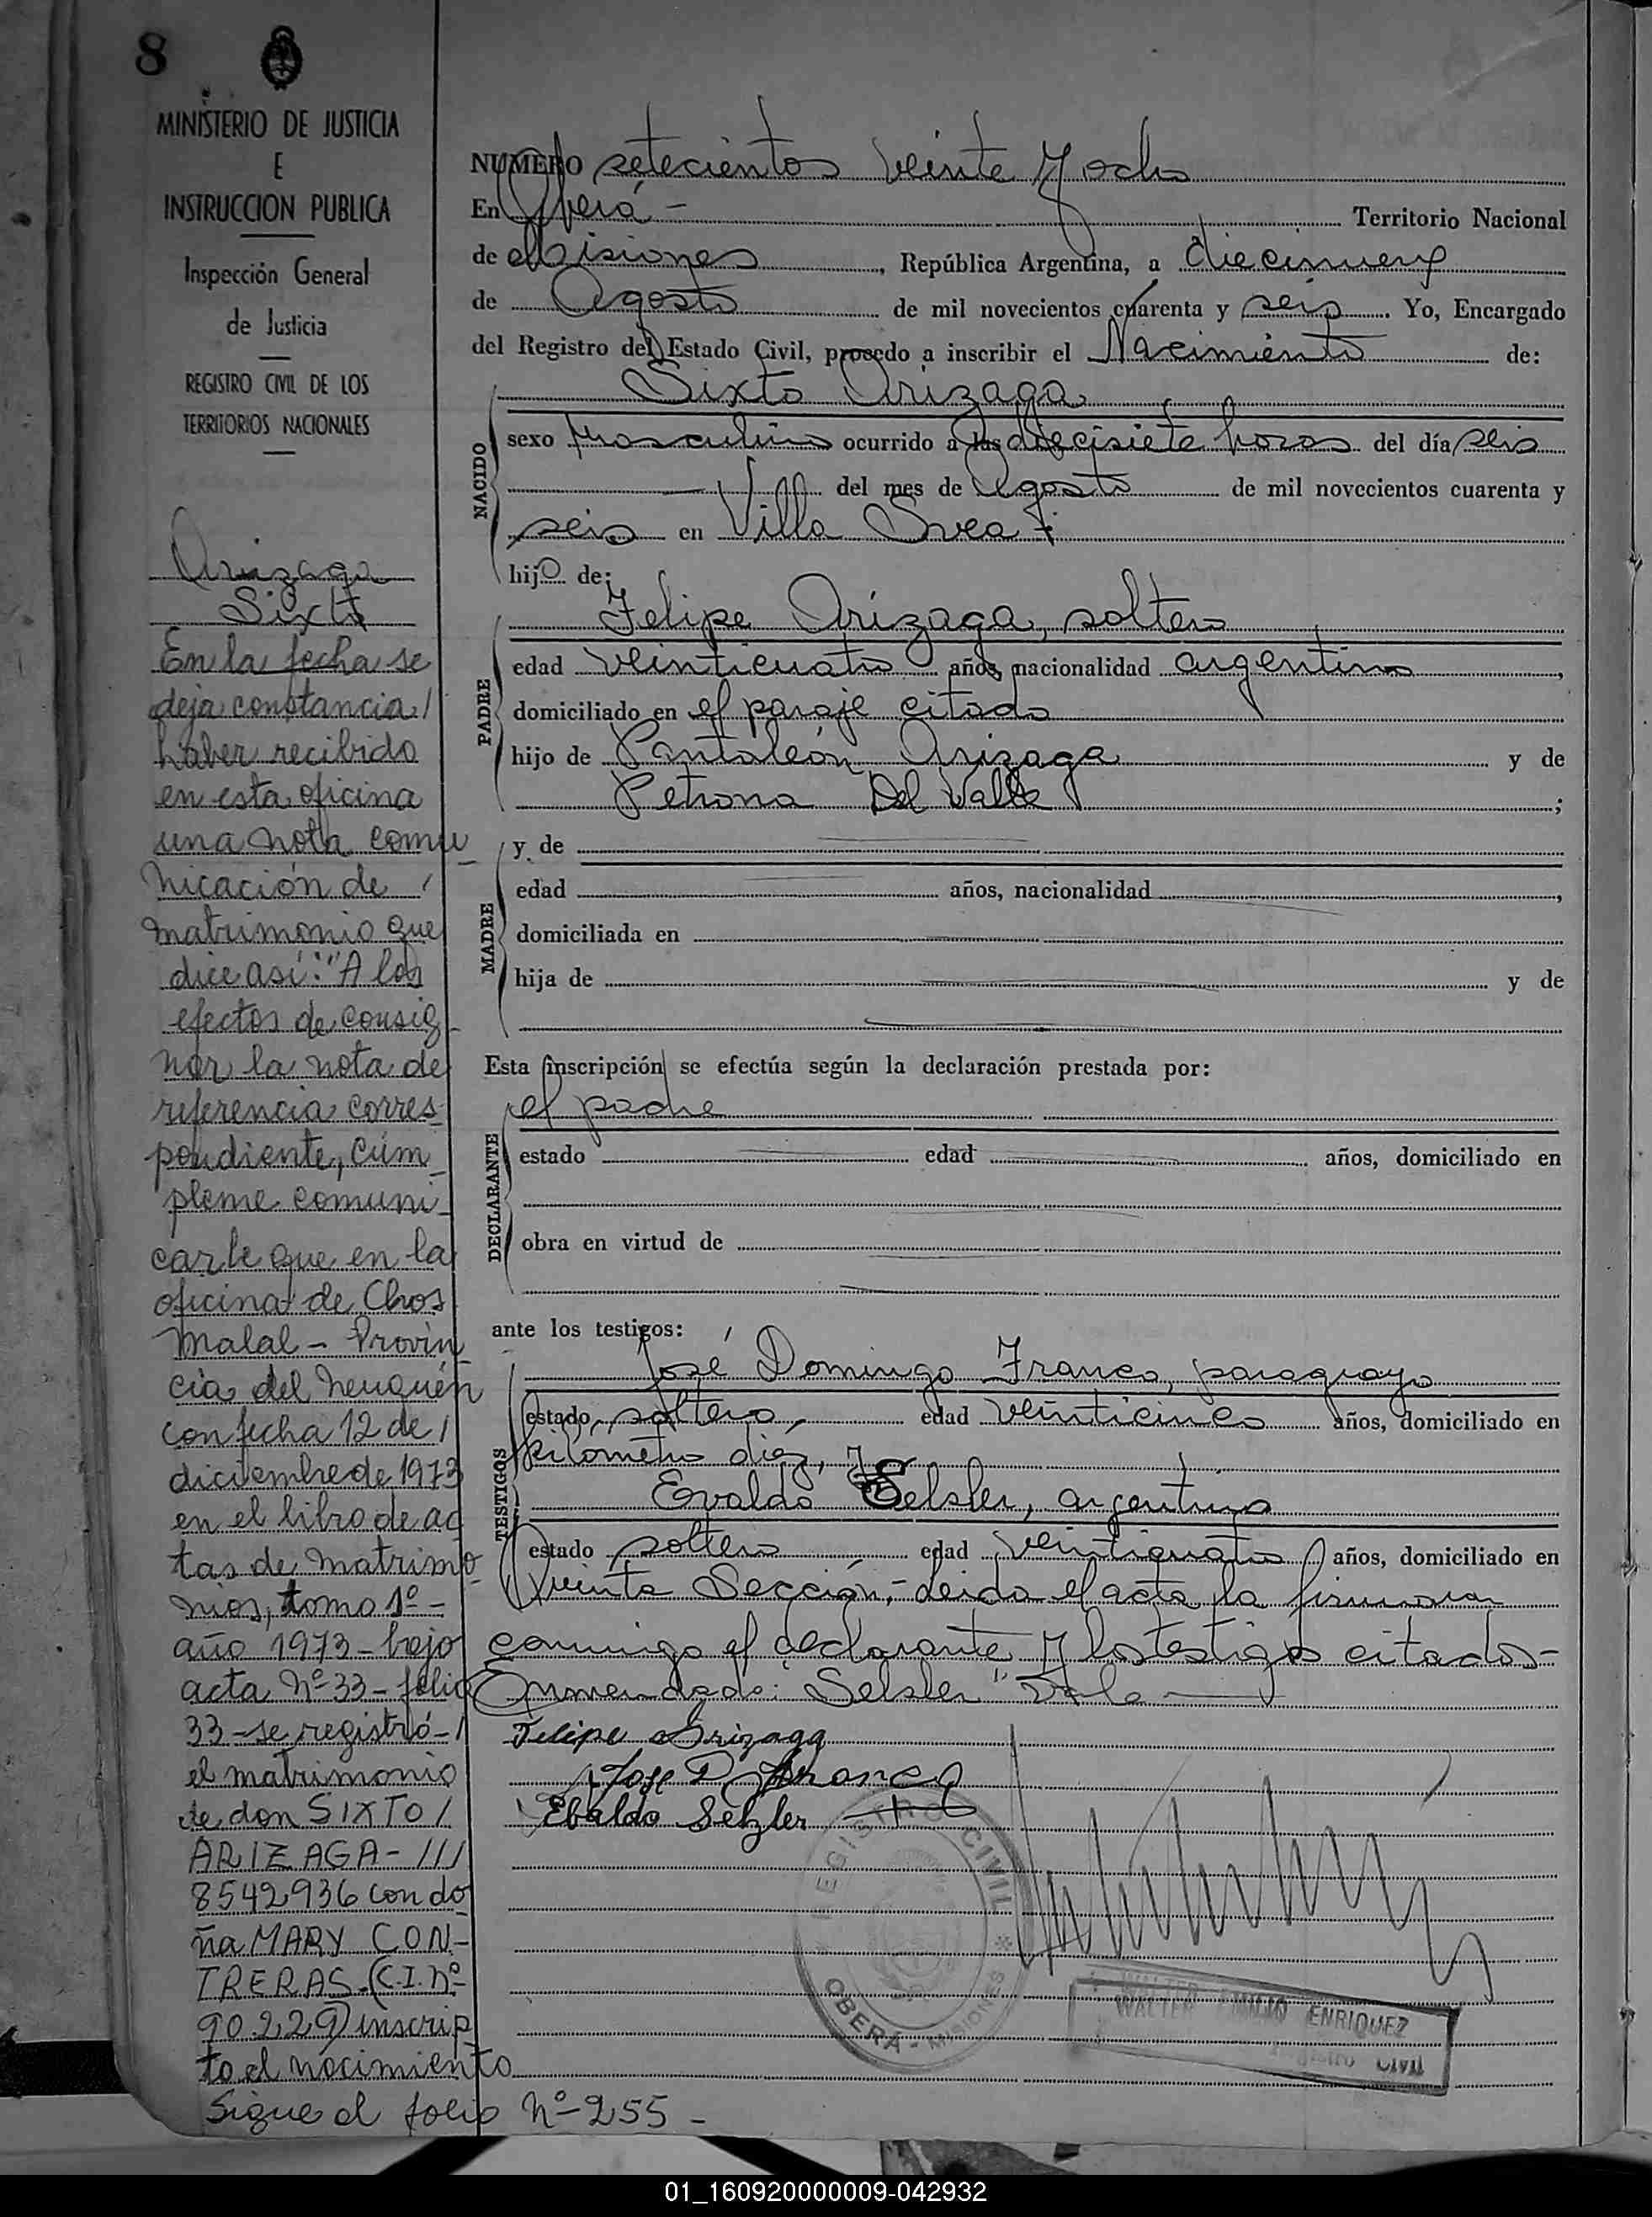 8
MINISTERIO DE JUSTICIA
E
INSTRUCCION PUBLICA
Inspección General
de Justicia
REGISTRO CIVIL DE LOS
TERRITORIOS NACIONALES
Arizaga
Sixto
En la fecha se
deja constancia /
haber recibido
en esta oficina
una nota comu
nicación de /
matrimonio que
dice así: "A los
efectos de consig
nar la nota de
referencia corres
pondiente, cúm
pleme comuni
carle que en la
oficina de Chos
Malal - Provin
cia del Neuquén
con fecha 12 de /
diciembre de 1973
en el libro de ac
tas de matrimo
nios, tomo 1º -
año 1973 - bajo
acta Nº 33 - folio
33 - se registró - /
el matrimonio
de don SIXTO /
ARIZAGA - ///
8542936 con do
ña MARY CON-
TRERAS - (C.I. Nº
90.229) inscrip
to el nacimiento
Sigue al folio Nº 255 -
NUMERO setecientos veinte y ocho
En Oberá - Territorio Nacional
de Misiones, República Argentina, a diecinueve
de Agosto de mil novecientos cuarenta y seis. Yo, Encargado
del Registro del Estado Civil, procedo a inscribir el Nacimiento de:
Sixto Arizaga
NACIDO
sexo masculino ocurrido a las diecisiete horas del día seis
del mes de Agosto de mil novecientos cuarenta y
seis en Villa Svea
hijo de:
PADRE
Felipe Arizaga, soltero
edad veinticuatro años, nacionalidad argentino,
domiciliado en el paraje citado
hijo de Pantaleón Arizaga y de
Petrona Del Valle;
MADRE
y de
edad años, nacionalidad,
domiciliada en
hija de y de
Esta inscripción se efectúa según la declaración prestada por:
DECLARANTE
el padre
estado edad años, domiciliado en
obra en virtud de
ante los testigos:
TESTIGOS
José Domingo Franco, paraguayo
estado, soltero, edad veinticinco años, domiciliado en
kilómetro diez, y
Evaldo Selsler, argentino
estado soltero edad veinticuatro años, domiciliado en
Quinta Sección, - leida el acta la firmaron
conmigo el declarante y los testigos citados -
Enmendado: Selsler" Vale
Felipe Arizaga
Jose D Franco
Ebaldo Selzler
REGISTRO CIVIL
OBERÁ - MISIONES
WALTER EMILIO ENRIQUEZ
CIVIL
01_160920000009-042932